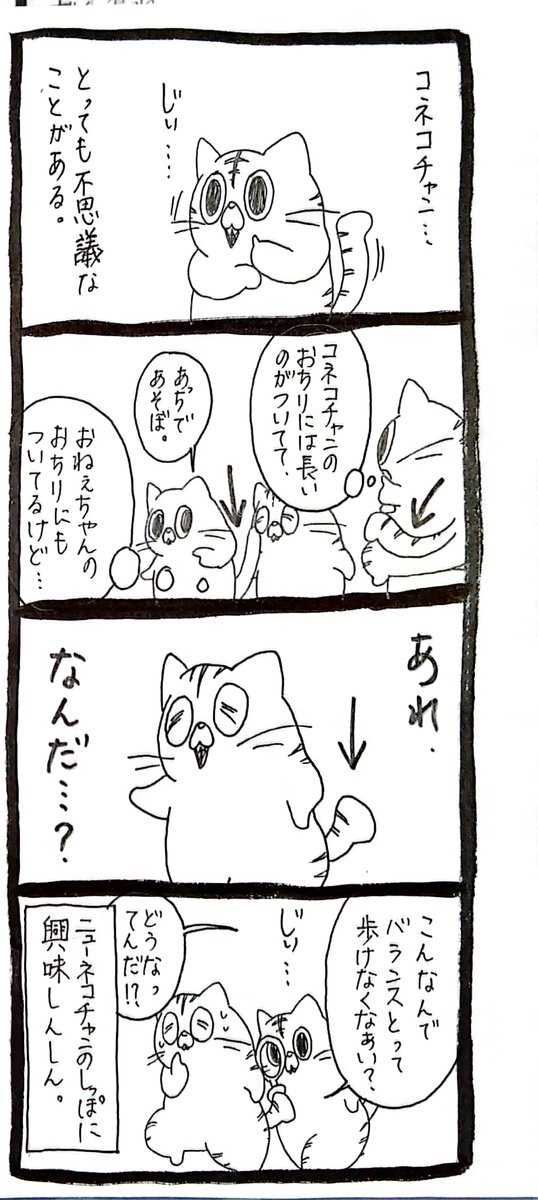 コネコチャン…
じぃ…
とっても不思議な
ことがある。
コネコチャンの
おちりには長い
のがついてて、
あっちで
あそぼ。
おねぇちゃんの
おちりにも
ついてるけど…
あれ、
なんだ…?
こんなんで
バランスとって
歩けなくなぁい?
じぃ…
どうなっ
てんだ!?
ニューネコチャンのしっぽに
興味しんしん。